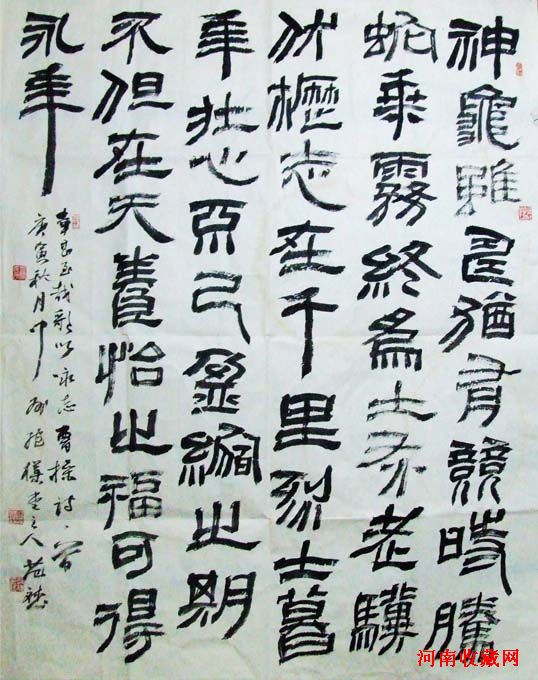 神龜雖壽猶有競時騰
蛇乘霧終為土灰老驥
伏櫪志在千里烈士暮
年壯心不已盈縮之期
不但在天養怡之福可得
永年
幸甚至哉歌以咏志曹操詩一首
庚寅秋月於抱樸堂主人
河南收藏网